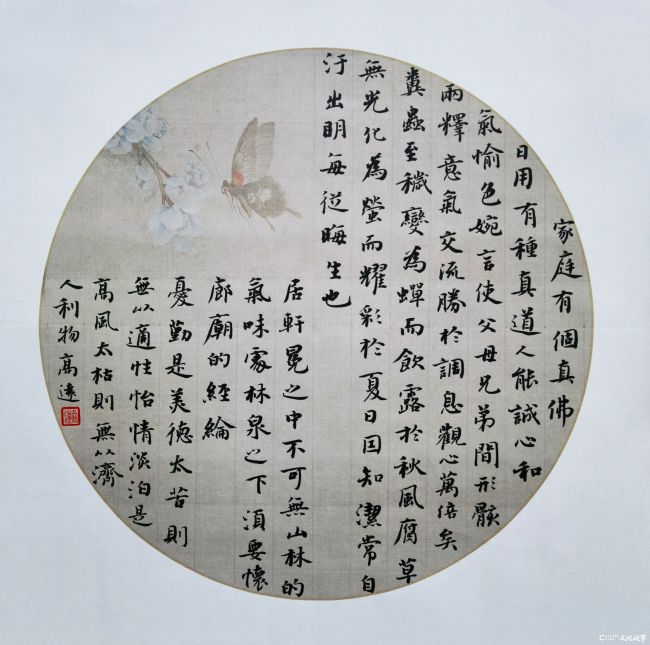 家庭有個真佛
日用有種真道人能誠心和
氣愉色婉言使父母兄弟間形骸
兩釋意氣交流勝於調息觀心萬倍矣
糞蟲至穢變為蟬而飲露於秋風腐草
無光化為螢而耀彩於夏日固知潔常自
汙出明每從晦生也
居軒冕之中不可無山林的
氣味處林泉之下須要懷
廊廟的經綸
憂勤是美德太苦則
無以適性怡情淡泊是
高風太枯則無以濟
人利物高遠